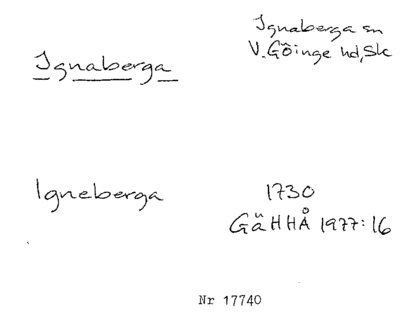 Ignaberga sn
V. Göinge hd, Sk
Ignaberga
Igneberga
1730
GäHHÅ 1977:16
Nr 17740